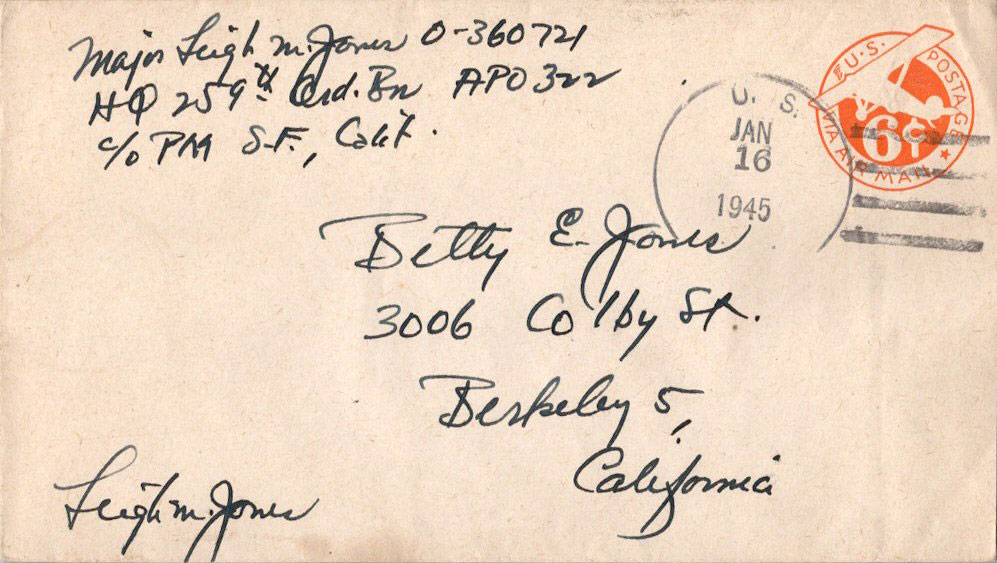 Major Leigh M. Jones O-360721
HQ 259th Ord. Bn APO 322
c/o PM S.F., Calif.
U. S.
JAN
16
1945
U.S. POSTAGE
6¢
VIA AIR MAIL
Betty E. Jones
3006 Colby St.
Berkeley 5,
California
Leigh M. Jones